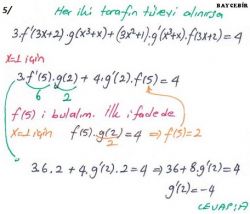 5/ Her iki tarafın türevi alınırsa
BAYCEBİR
3.f'(3x+2).g(x³+x)+(3x²+1).g'(x³+x).f(3x+2)=4
x=1 için
3.f'(5).g(2) + 4.g'(2).f(5)=4
6 2
f(5) i bulalım. İlk ifadede
x=1 için f(5).g(2)=4 ⇒ f(5)=2
2
3.6.2 + 4.g'(2).2=4 ⇒ 36+8.g'(2)=4
g'(2)=-4
CEVAP:A